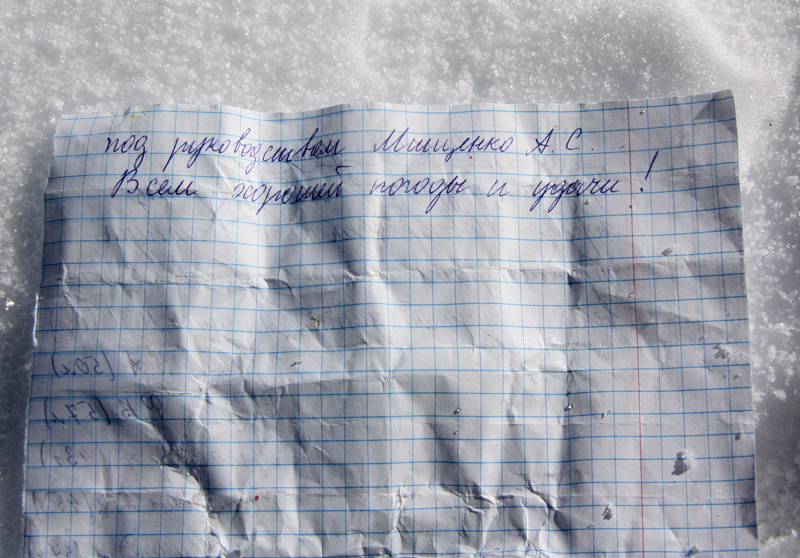 под руководством Мищенко А.С.
Всем хорошей погоды и удачи!